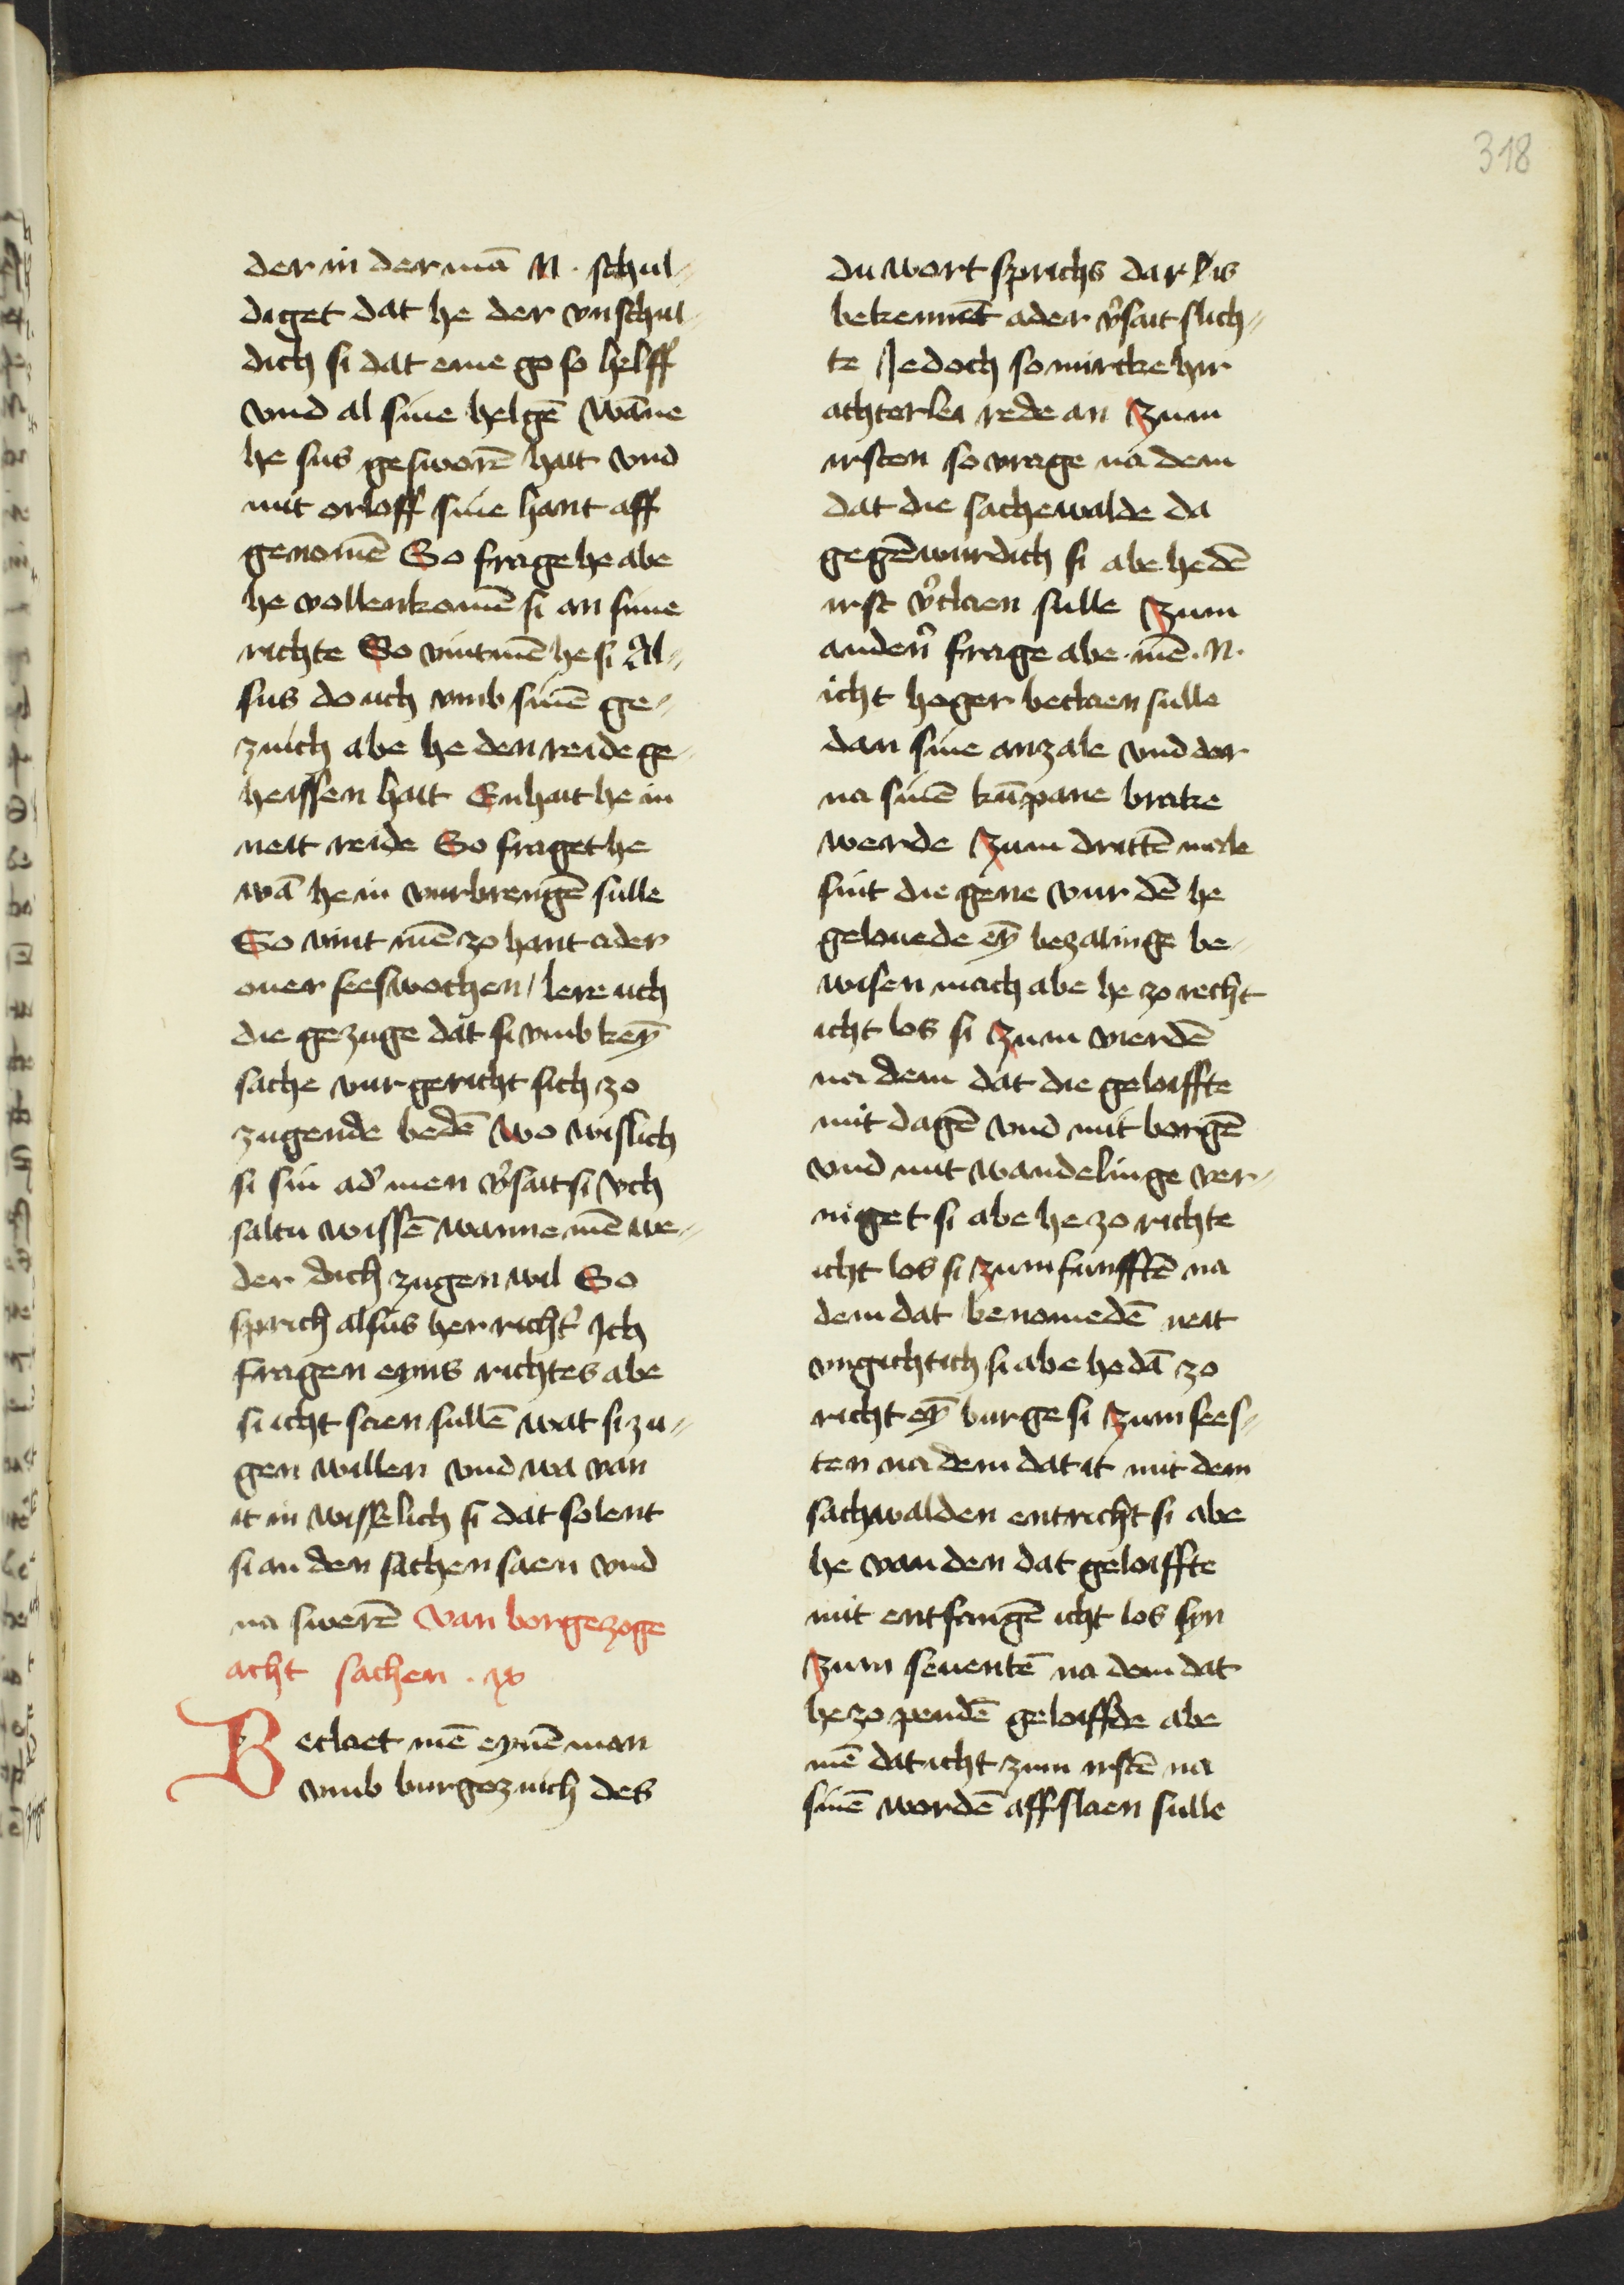 318
der in der mā N · schul-
diget dat he der vnschul-
dich si dat eme go so helff
vnd al sine helgē wāne
he sus gesworē hait vnd
mit orloff sine hant aff
genomē So frage he abe
he vollenkomē si an sime
richte So vintmē he si Al-
sus do uch vmb sinē ge-
zuich abe he den reide ge-
heissen hait Enhait he in
neit reide So fraget he
wā he in vurbrengē sulle
So vint mē zo hant ader
ouer sees wochen / lere uch
die gezuge dat si vmb keȳ
sache vur gericht sich zo
zugende bedē wo wislich
si sin ad' men v'sait si Vch
saltu wissē wanne mē we-
der dich zugen wil So
sprich alsus her richt' Ich
fragen eyns richtes abe
si icht saen sullē wat si zu-
gen willen vnd wa van
it in wisselich si dat solent
si an den sachen saen vnd
na swerē Van borgezoge
acht sachen . ix
Beclaet mē eynē man
vmb burgezuich des
du wort sprichs dar Eis
bekennet ader v'sait slich-
te Jedoch so mircke hir
achterlei rede an Zum
irsten so vrage na dem
dat die sachewalde da
gegēwurdich si abe he dē
irst v'claen sulle Zum
anden' frage abe mē · N ·
icht hoger beclaen sulle
dan sine anzale vnd dar
na sinē kūpane brake
werde Zum drittē male
sint die gene vur dē he
gelouede eȳ bezalinge be-
wisen mach abe he zo recht
icht los si Zum vierdē
na dem dat die geloiffte
mit dagē vnd mit borgē
vnd mit wandelinge ver-
niget si abe he zo richte
icht los si Zum funfftē na
dem dat benomedē neit
vngichtich si abe he dā zo
richt eȳ burge si Zum sees-
ten na dem dat it mit dem
sachwalden entricht si abe
he van den dat geloiffte
mit entfangē icht los syn
Zum seuentē na dem dat
he zo pendē geloiffde abe
mē dat icht zum irstē na
sinē wordē affslaen sulle